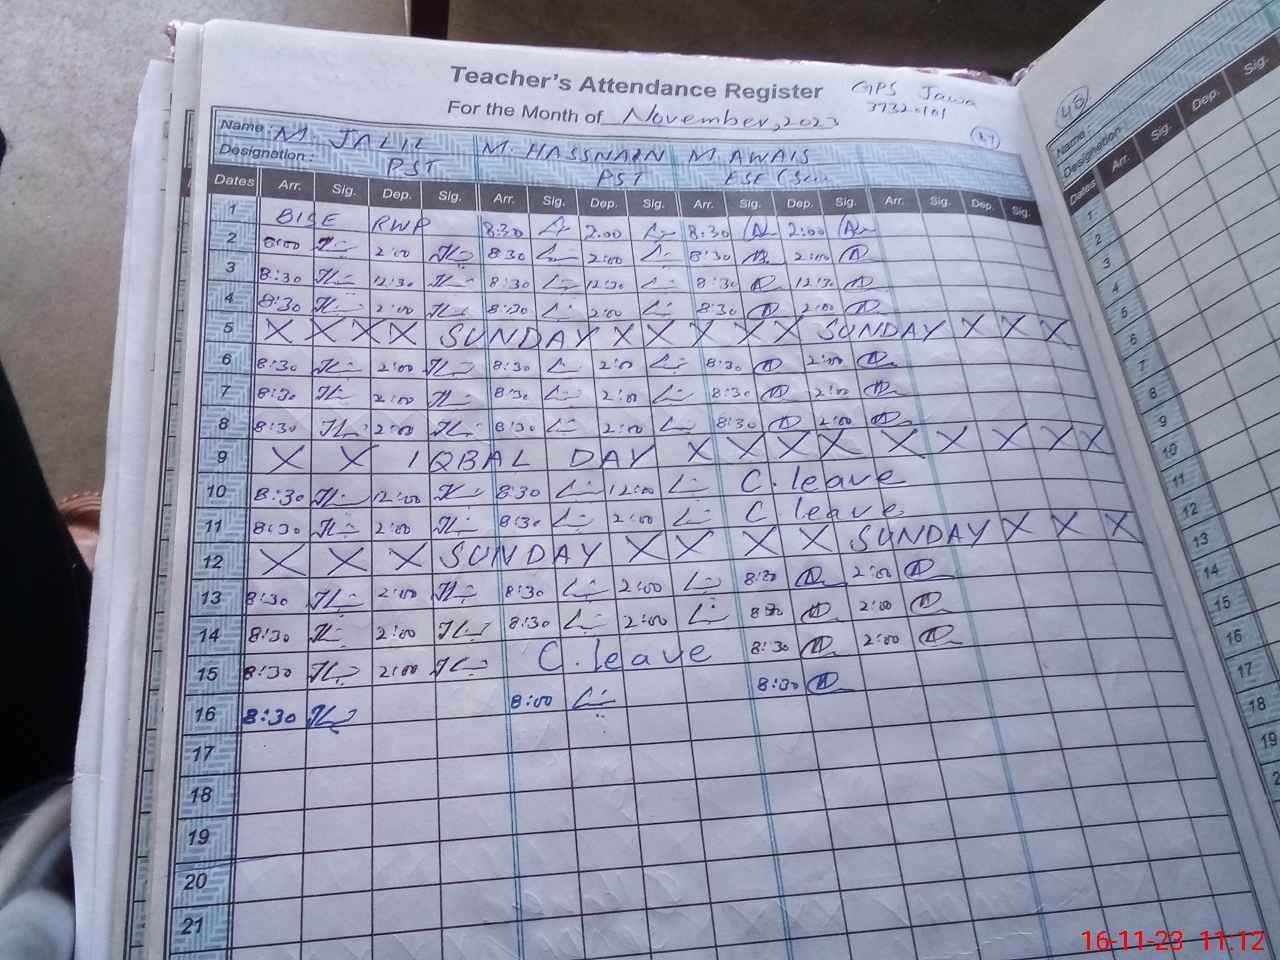 Teacher's Attendance Register
GPS Jawa
For the Month of November, 2023
37320101
47
Name : M JALIL M. HASSNAIN M. AWAIS
Designation : PST PST ESE (Sci
Dates Arr. Sig. Dep. Sig. Arr. Sig. Dep. Sig. Arr. Sig. Dep. Sig. Arr. Sig. Dep. Sig.
1 BISE RWP 8:30 2:00 8:30 2:00
2 8:00 2:00 8:30 2:00 8:30 2:00
3 8:30 12:30 8:30 12:30 8:30 12:30
4 8:30 2:00 8:30 2:00 8:30 2:00
5 X X X X SUNDAY X X X X X SUNDAY X X X
6 8:30 2:00 8:30 2:00 8:30 2:00
7 8:30 2:00 8:30 2:00 8:30 2:00
8 8:30 2:00 8:30 2:00 8:30 2:00
9 X X IQBAL DAY X X X X X X X X X
10 8:30 12:00 8:30 12:00 C. leave
11 8:30 2:00 8:30 2:00 C. leave
12 X X X SUNDAY X X X X SUNDAY X X X
13 8:30 2:00 8:30 2:00 8:30 2:00
14 8:30 2:00 8:30 2:00 8:30 2:00
15 8:30 2:00 C. leave 8:30 2:00
16 8:30 8:00 8:30
17
18
19
20
21
48
Name
Designation :
Dates Arr. Sig. Dep. Sig.
1
2
3
4
5
6
7
8
9
10
11
12
13
14
15
16
17
18
19
2
16-11-23 11:12